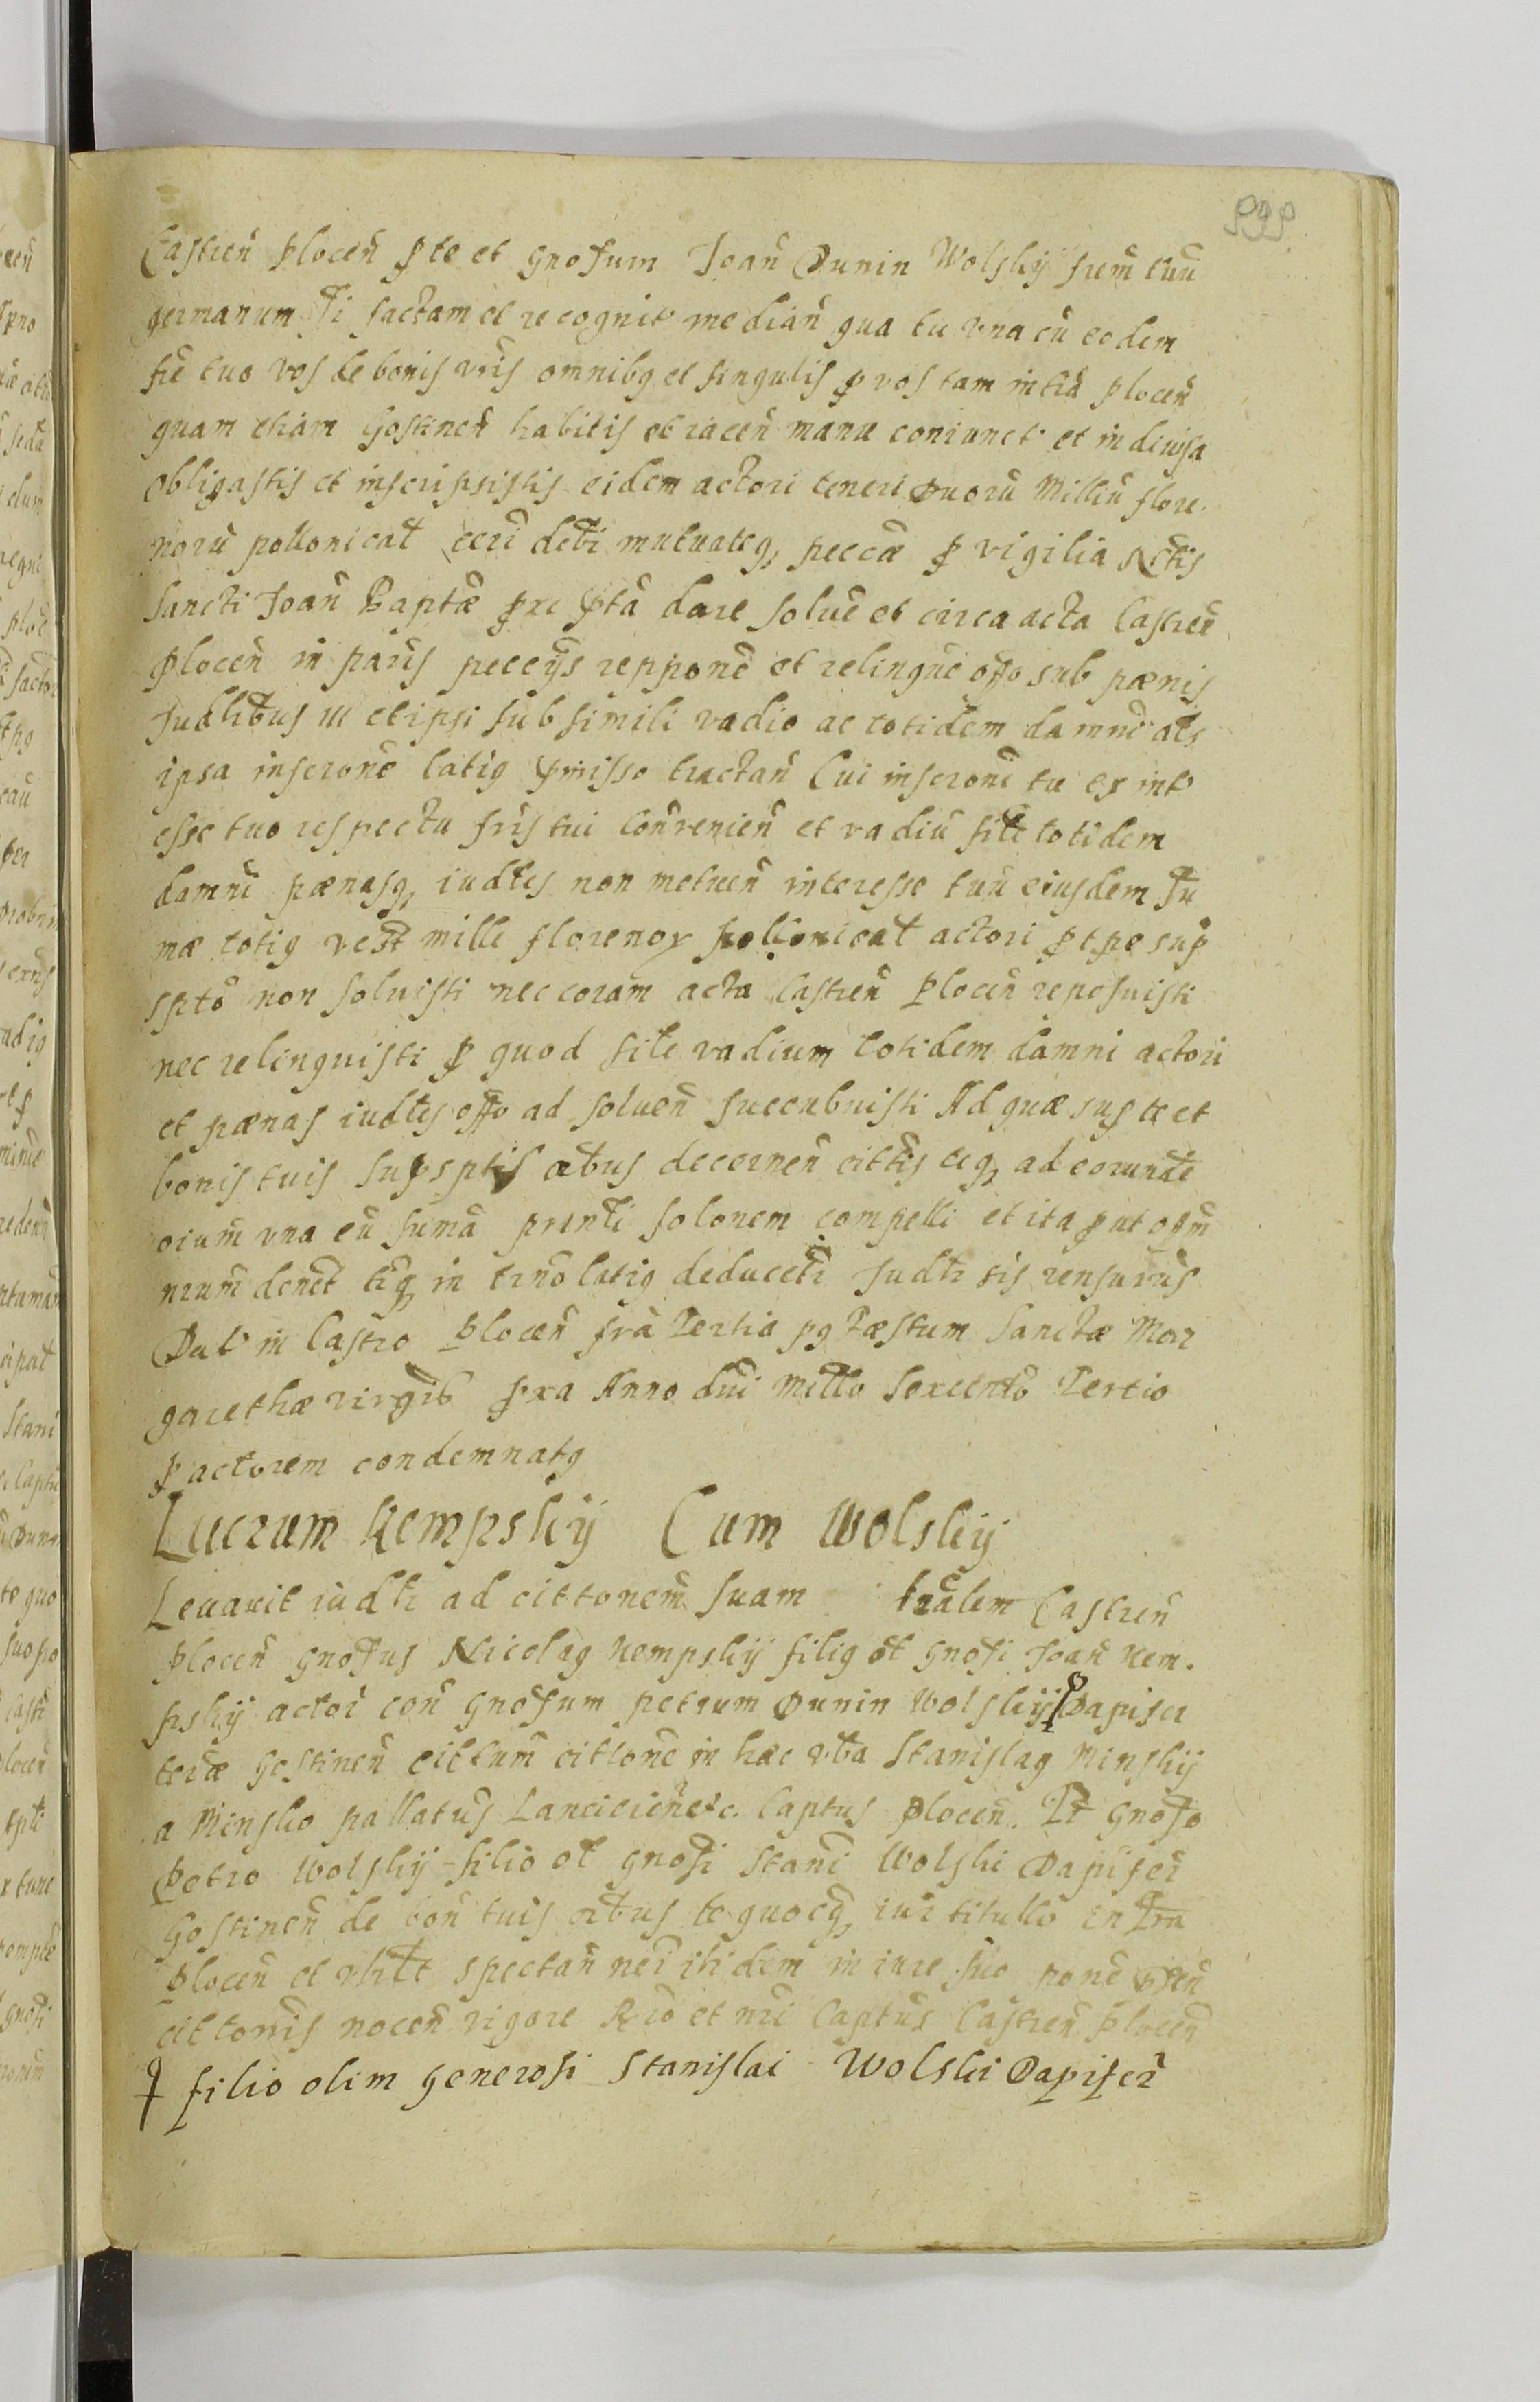 Castren̄ plocen̄ ꝑ te et gnosum Joan̄ Dunin Wolskij frem̄ tuū
germanum sui factam et recognit median̄ qua tu vna cū eodem
fr̄e tuo vos de bonis vr̄is omnibq et singulis ꝑ vos tam in tr̄a plocen̄
quam etiam Gostinen̄ habitis et iacen̄ manu coniunct et indiuisa
obligastis et inscripsistis eidem actori teneri Duorū Milliū flore
norū pollonicaƚ veri debi mutuateq peccæ ꝑ vigilia Nctis
Sancti Joan̄ Baptæ dare solue et circa acta Castren̄
plocen̄ in parīs peccijs reppone et relinque offo sub pænis
Judlibus ut et ipsi sub simili vadio ac totidem damni als
ipsa inscrone latiq pmisso tractan̄ Cui inscroni tu ex int
esse tuo respectu fris tui conuenien̄ et vadiū sile totidem
damni pænasq iudles non metuen̄ interesse tuū eiusdem Su
mæ totiq vest mille florenoꝝ pollonicaƚ actori ꝑ tpe sup
spto non soluisti nec coram acta Castren̄ Plocen̄ reposuisti
nec relinquisti ꝑ quod sile vadium totidem damni actori
et pænas iudles offo ad soluen̄ succubuisti Ad quæ sup te et
bonis tuis supsptis oībus decernen̄ cittis teq ad eorunde
oium̄ vna cū sumā prnti solonem compelli et ita put
nrum̄ denet tiq in trno latiq deducetr Judlr sis rensurus
Dat in Castro Plocen̄ fr̄a Tertia pq Fæstum Sanctæ Mar
garethæ virgis pxa Anno dni Millo Sexcento Tertio
ꝑ actorem condemnatq
Lucrum Kempskij Cum Wolskij
Leuauit iudlr ad cittonem suam tralem Castren̄
plocen̄ gnosus Nicolaq Kempskij filiq oƚ gnosi Joan̄ Kem.
pskij actor con̄ gnosum petrum Dunin Wolskij Dapifer
teræ Gostinen̄ cittum cittone in hæc vba Stanislaq Minskij
a Minsko pallatus Lancicien̄ etc. Captus plocen̄. Tt gnoso
Petro Wolskij filio oƚ gnosi Stani Wolski Dapifer
Gostinen̄ de bon̄ tuis oībus te quocq iur titullo in Tra
Plocen̄ et vbilt spectan̄ ner ibidem in iure suo pone pnen̄
cittonis nocen̄ rigore Rio et nri Captus Castren̄ plocen̄
filio olim Generosi Stanislai Wolski Dapifer